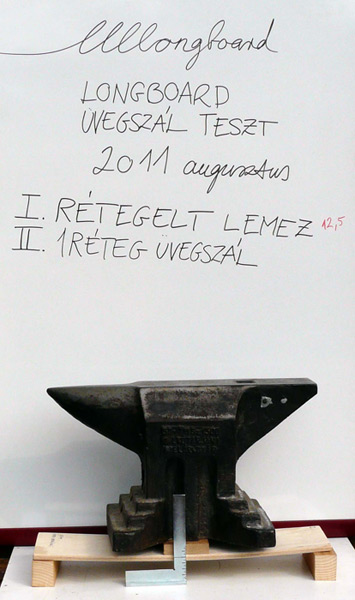 lllllongboard
LONGBOARD
ÜVEGSZÁL TESZT
2011 augusztus
I. RÉTEGELT LEMEZ 12,5
II. 1 RÉTEG ÜVEGSZÁL